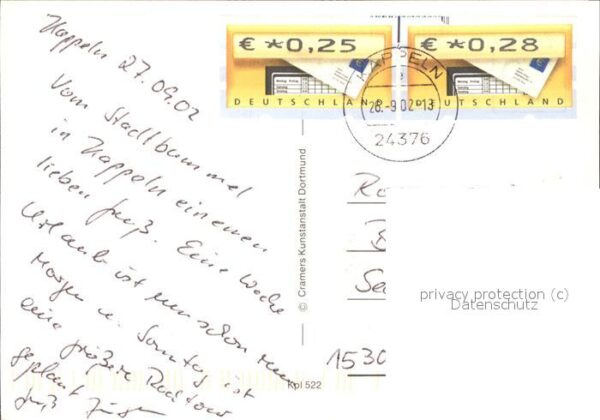 Kappeln 27.09.02
Vom Stadtbummel
in Kappeln einen
lieben Gruß. Eine Woche
Urlaub ist nun schon rum
Morgen u. Sonntag ist
eine größere Radtour
geplant
Gruß
€ *0,25
DEUTSCHLAND
€ *0,28
DEUTSCHLAND
KAPPELN
28.-9.02-13
24376
© Cramers Kunstanstalt Dortmund
Kpl 522
1530
privacy protection (c)
Datenschutz